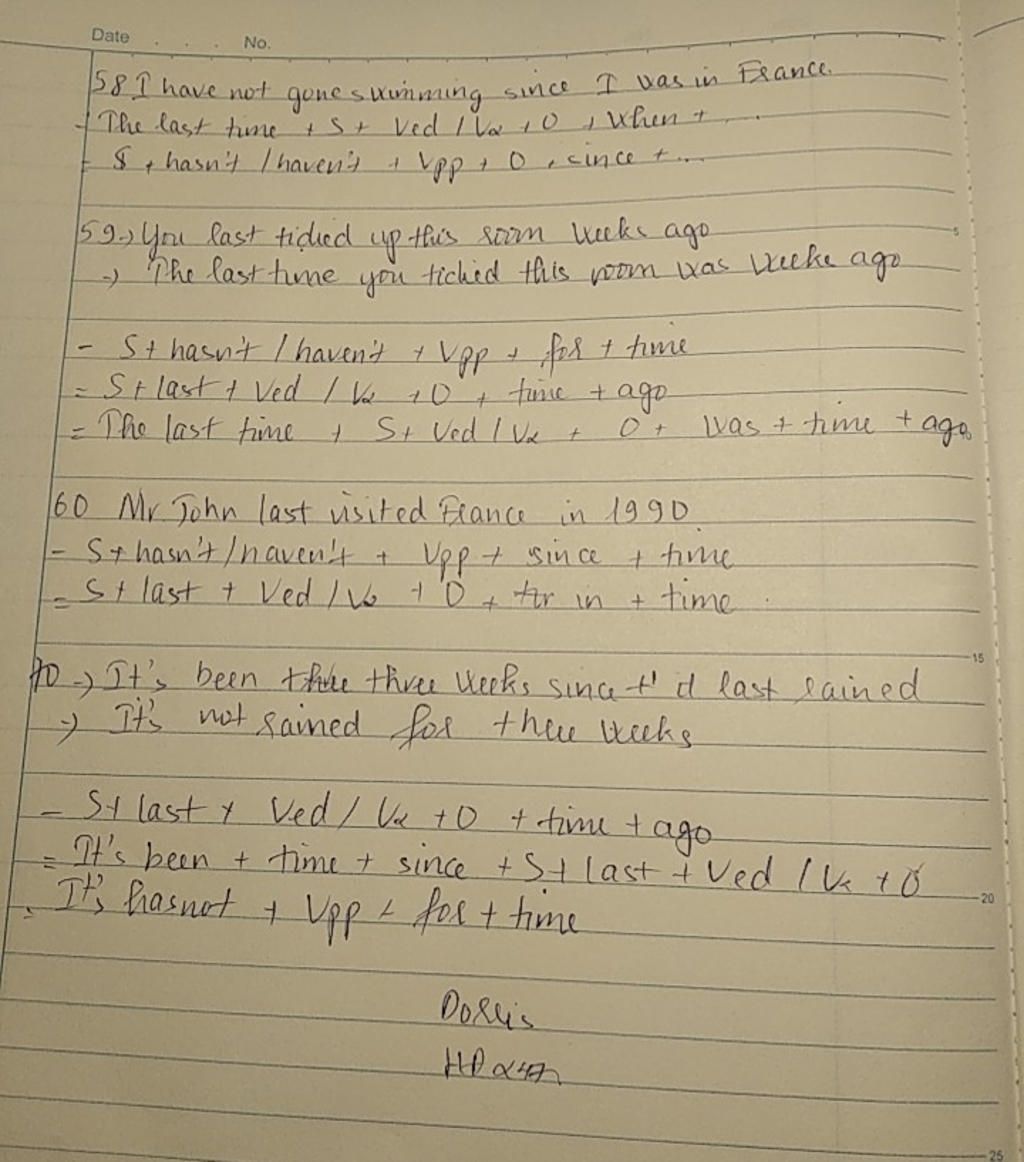 Date . . . No.
58 I have not gone swimming since I was in France.
- The last time + S + Ved / V2 + O + when + ....
= S + hasn't / haven't + Vpp + O + since + ....
59 → You last tidied up this room weeks ago
→ The last time you tidied this room was weeks ago
- S + hasn't / haven't + Vpp + for + time
= S + last + Ved / V2 + O + time + ago
= The last time + S + Ved / V2 + O + was + time + ago
60 Mr John last visited France in 1990.
- S + hasn't / haven't + Vpp + since + time
= S + last + Ved / V2 + O + in + time
70 → It's been three weeks since last rained
→ It's not rained for three weeks
- S + last + Ved / V2 + O + time + ago
= It's been + time + since + S + last + Ved / V2 + O
= It's hasnot + Vpp + for + time
Dorris
5
15
20
25